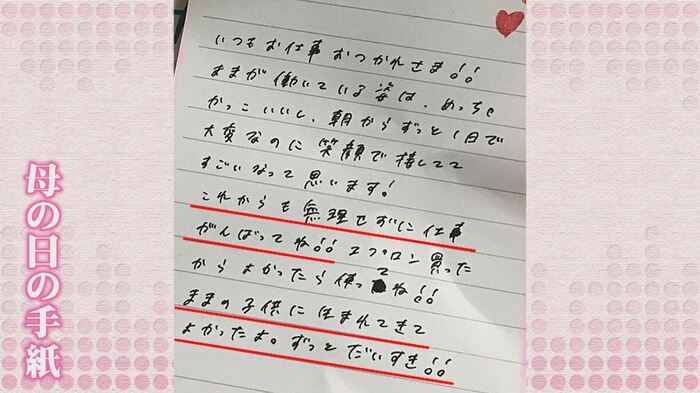 いつもお仕事おつかれさま!!
ままが働いている姿は、めっちゃ
かっこいいし、朝からずっと1日で
大変なのに笑顔で接してて
すごいなって思います!
これからも無理せずに仕事
がんばってね!! エプロン買った
からよかったら使ってね!!
ままの子供に生まれてきて
よかったよ。ずっとだいすき!!
母の日の手紙